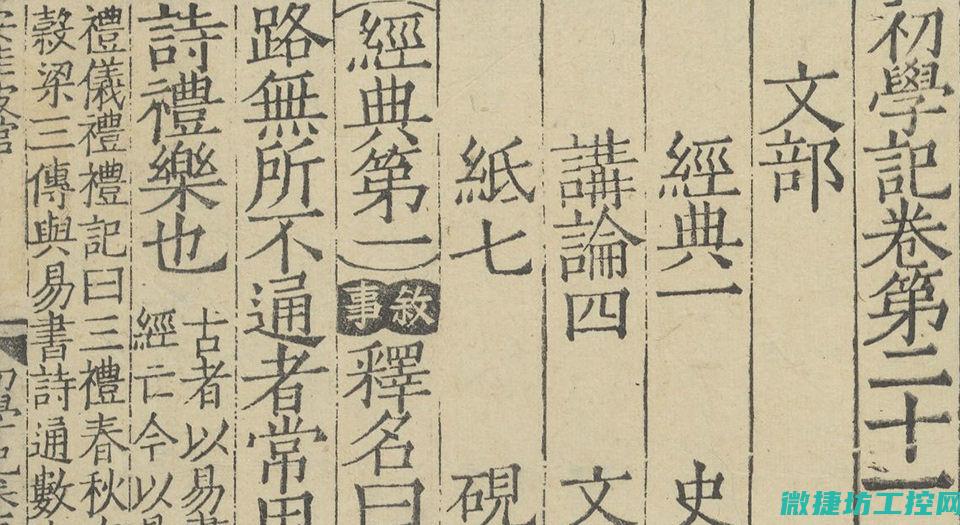 初學記卷第二十一
文部
經典一 史
講論四 文
紙七 硯
（經典第一）敘事 釋名曰
路無所不通者常用
詩禮樂也 古者以易
經亡今以
禮儀禮禮記曰三禮春秋
穀梁三傳與易書詩通數
微捷坊工控网